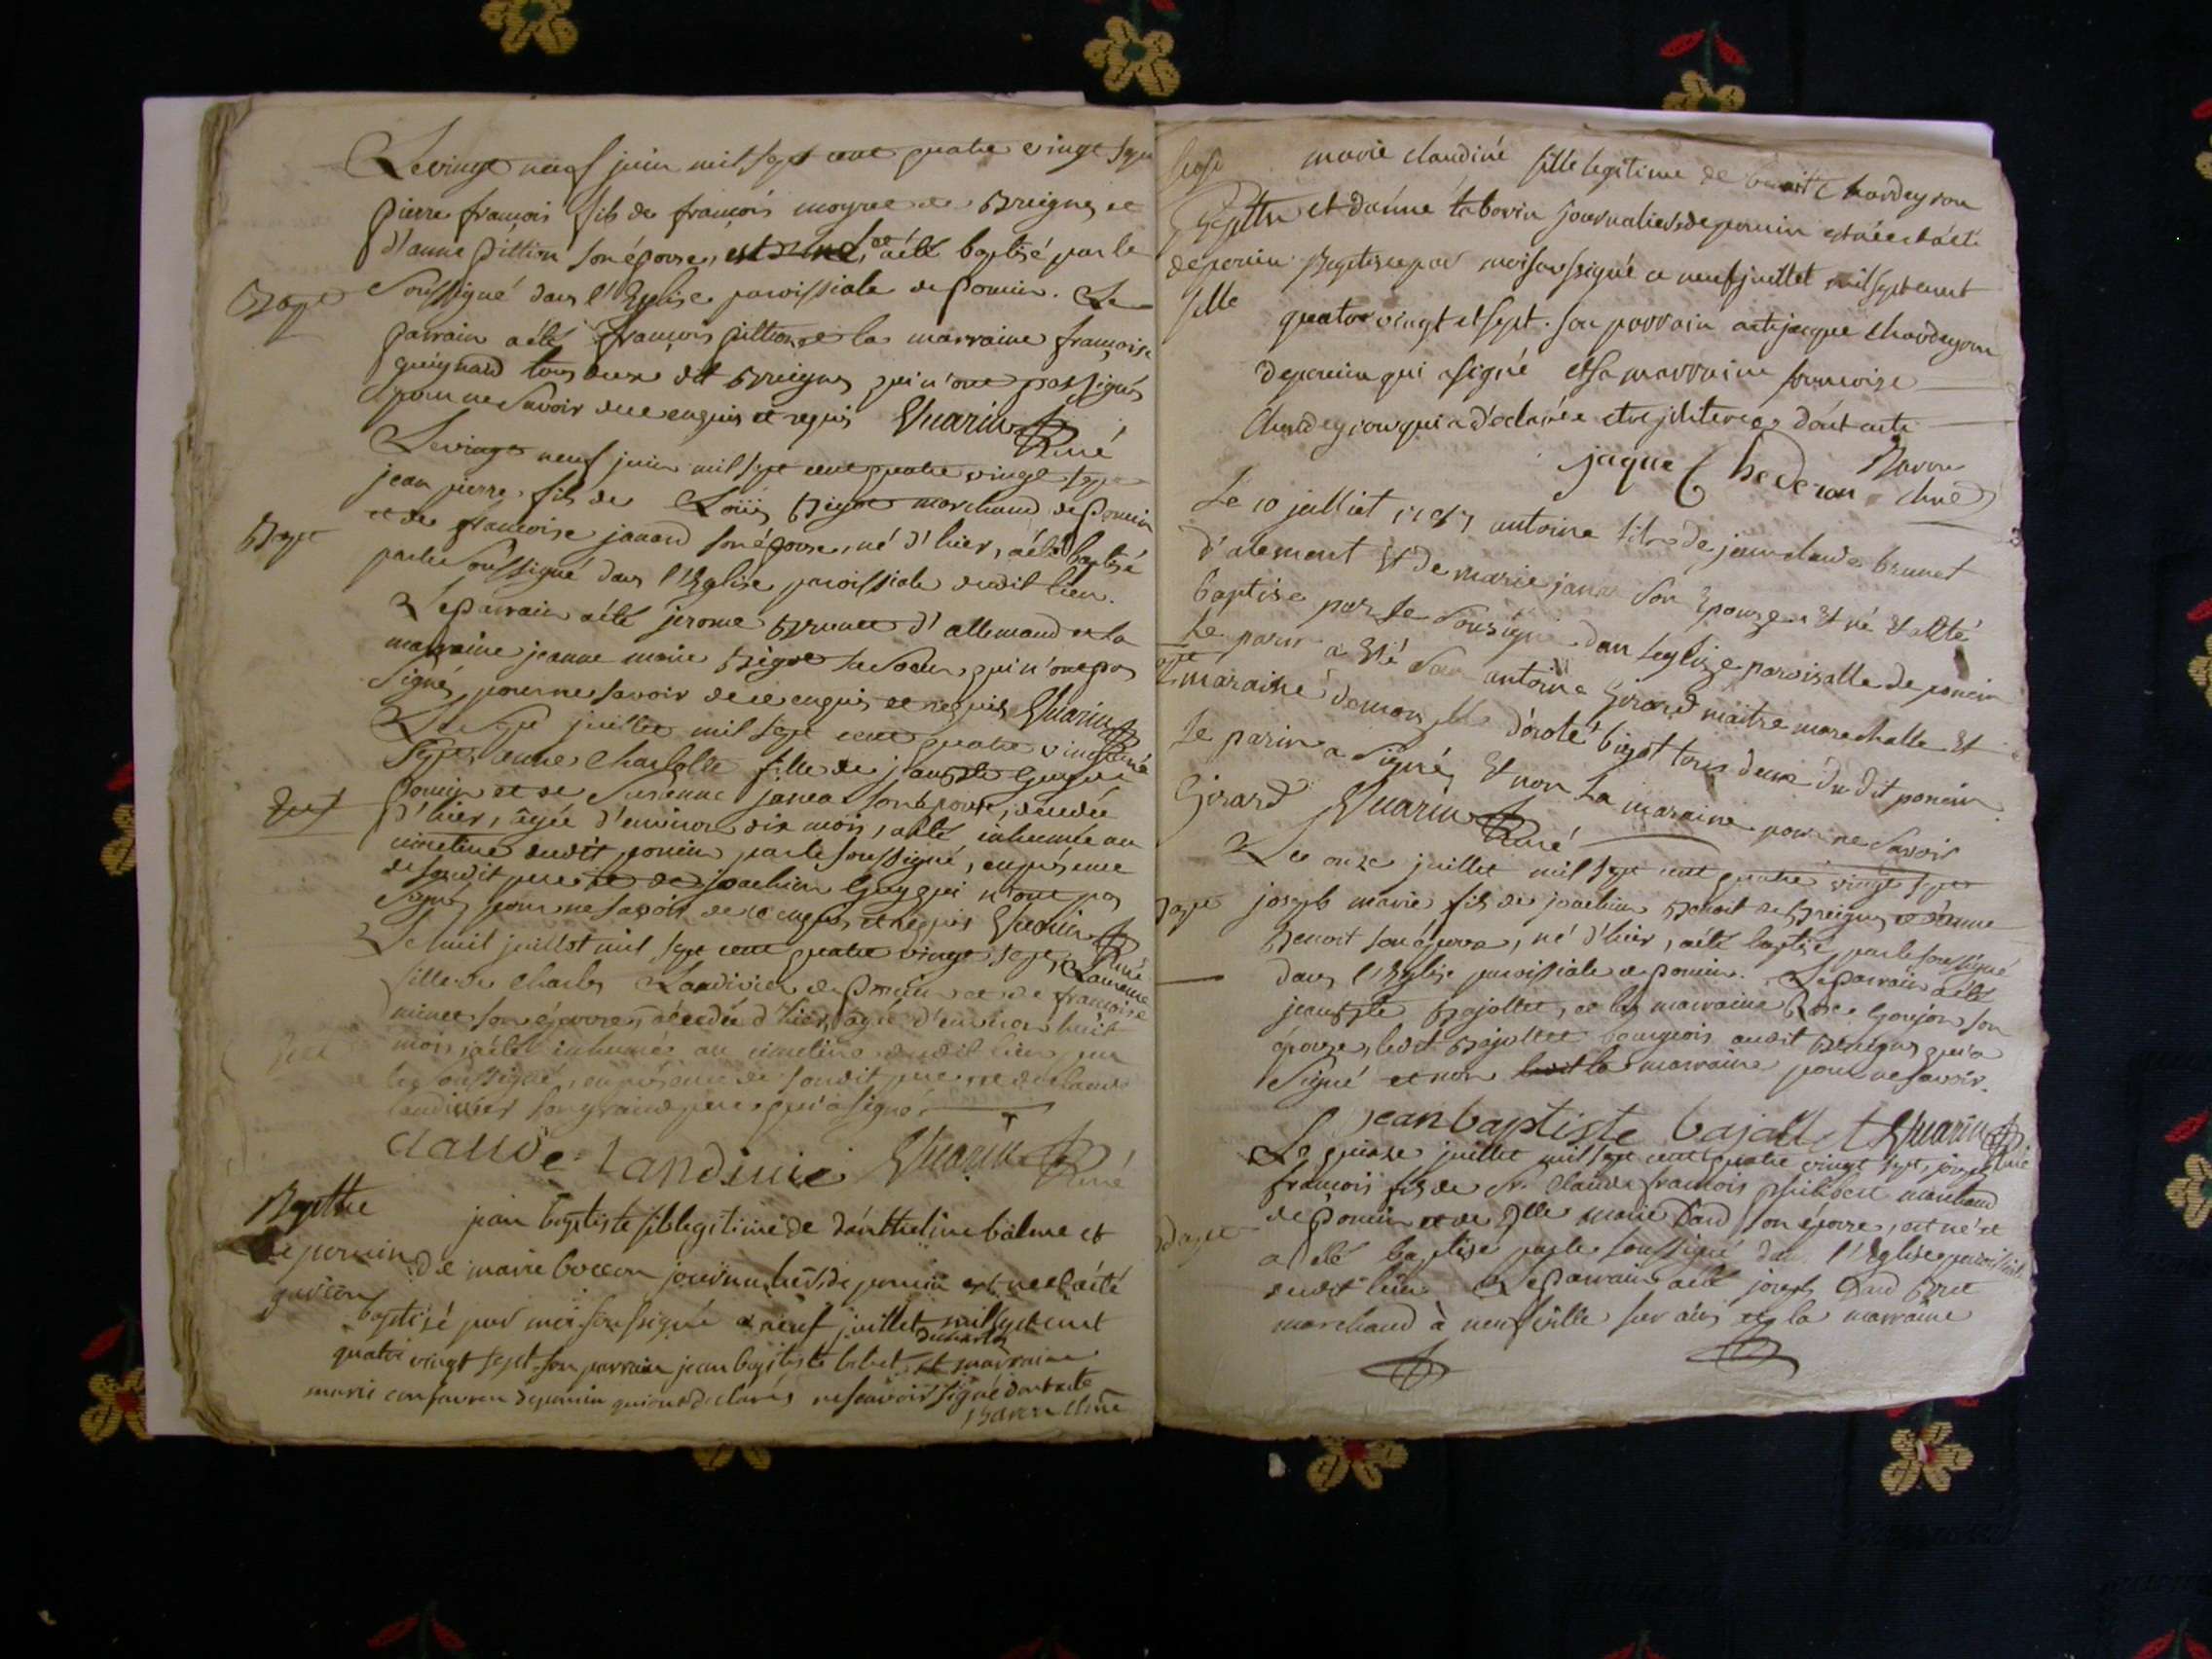 Le vingt neuf juin mil sept cent quatre vingt sept
pierre françois fils de françois moyret de Breignes et
d'anne pittion son épouse, et a été baptisé par le
Bapt
Soussigné dans l'Eglise paroissiale de Poncin. Le
parrain a été françois pittion et la marraine françoise
guignard tous deux dit Breignes qui n'ont pas signés
pour ne savoir de ce enquis et requis Guarin Curé
Le vingt neuf juin mil sept cent quatre vingt sept
jean pierre fils de Loüis marchand de Poncin
et de francoise janand son épouse, né d'hier, a été baptisé
Bapt
par le Soussigné dans l'Eglise paroissiale dudit lieu.
Le parrain a été jerome Brunet d'allemand et la
marraine jeanne marie sa Soeur, qui n'ont pas
Signés pour ne savoir de ce enquis et requis Guarin Curé
Le Sept juillet mil sept cent quatre vingt
Sept, anne Charlotte fille de
Poncin et de Suzanne son épouse, décédée
d'hier, âgée d'environ dix mois, a été inhumée au
cimetiere dudit poncin par le soussigné, en présence
de sondit pere et de joachim Guy qui n'ont pas
Signés pour ne savoir de ce enquis et requis Guarin Curé
Le huit juillet mil sept cent quatre vingt sept,
fille de Charles Landivier de Poncin et de françoise
son épouse, décédée d'hier, âgée d'environ huit
mois, a été inhumée au cimetiere dudit lieu par
le soussigné, en présence de sondit pere et de claude
landivier son grand pere qui a signé.
claude Landivié Guarin Curé
Baptte
de poncin
garcon
jean baptiste fils legitime de d'anthelme balme et
de marie boccon journaliérs de poncin est né et a été
baptisé par moi soussigné ce neuf juillet mil sept cent
quatre vingt sept son parrain jean baptiste et marraine
marie de poncin qui ont declarés ne scavoir signé dont acte
Curé
marie claudine fille legitime de benoit Chardeyron
Baptte et d'anne taborin journaliers de poncin est née et a été
de poncin Baptisee par moi soussigné ce neuf juillet mil sept cent
fille
quatre vingt et sept. son parrain a été jacque chardeyron
de poncin qui a signé et sa marraine francoise
Chardeyron qui a déclarée etre jlliterée dont acte
jaque Chederon Curé
Le 10 julliet 1787 antoine fils de jean claude brunet
d'alement Et de marie janne Son Epouze Et né Et a été
baptise par Le Sousigné dan Leglize paroisalle de poncin
Le parin a Eté antoine Girard maitre marechalle Et
maraine demoiselle doroté bigot tous deux du dit poncin
Le parin a Signé Et non La maraine pour ne Savoir
Girard Guarin Curé
Le onze juillet mil sept cent quatre vingt sept
Bapt
joseph marie fils de joachim Benoit de Breignes et d'anne
Benoit son épouse, né d'hier, a été baptisé par le soussigné
dans l'Eglise paroissiale de Poncin. Le parrain a été
jean Bte Bajollet, et la marraine Goujon son
épouse, ledit Bajollet bourgeois audit Breignes qui a
Signé et non la marraine pour ne savoir.
jean baptiste bajollet Guarin Curé
Le quinze juillet mil sept cent quatre vingt sept, joseph
françois fils de Sr Claude francois philibert marchand
de Poncin et de Dlle marie Dard son épouse, est né et
Bapt
a été baptisé par le soussigné dans l'Eglise paroissiale
dudit lieu. Le Parrain a été joseph Dard
marchand à neuville sur ains et la marraine